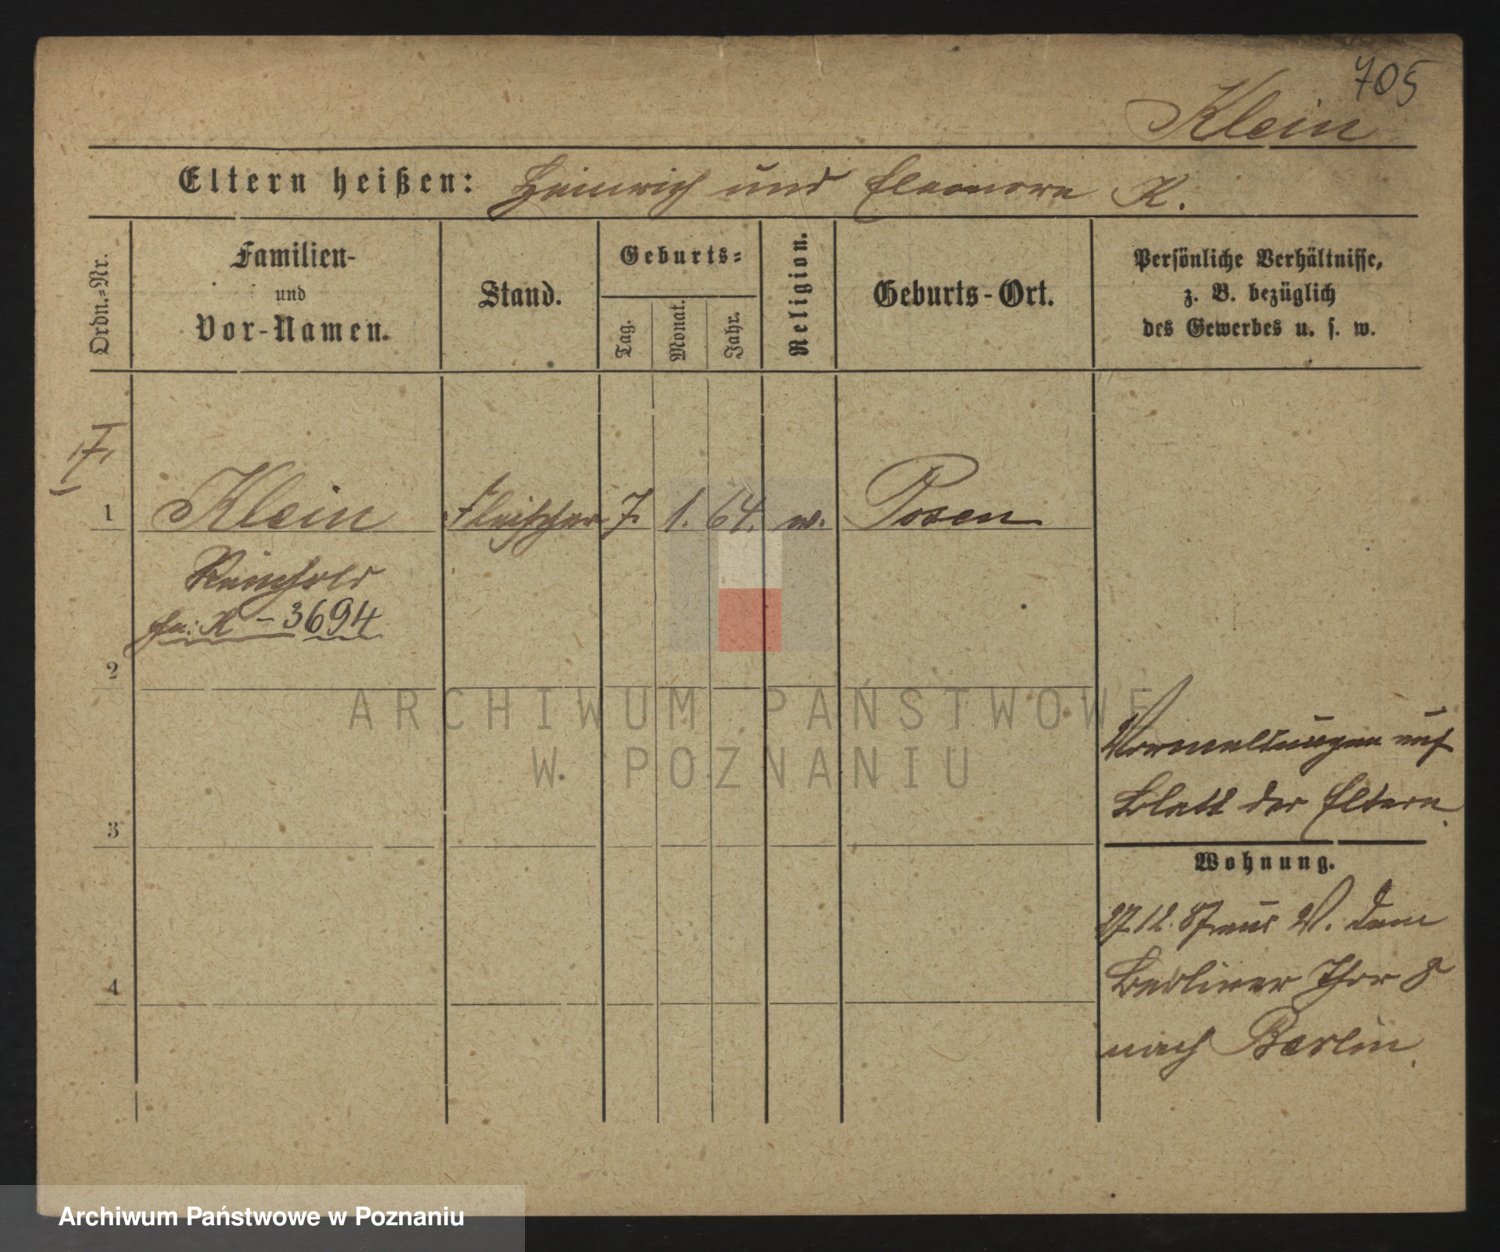 705
Klein
Eltern heißen: Heinrich und Eleonore K.
Ordn.-Nr.
Familien-
und
Vor-Namen.
Stand.
Geburts-
Tag.
Monat.
Jahr.
Religion.
Geburts-Ort.
Persönliche Verhältnisse,
z. B. bezüglich
des Gewerbes u. s. w.
1
Klein
Fleischer
7.
1.
64.
Posen
Reinhold
K - 3694
2
3
4
Vormeldungen auf
Blatt der Eltern.
Wohnung.
27.12.87 aus V. dem
Berliner Thor 8
nach Berlin.
ARCHIWUM PAŃSTWOWE
W POZNANIU
Archiwum Państwowe w Poznaniu